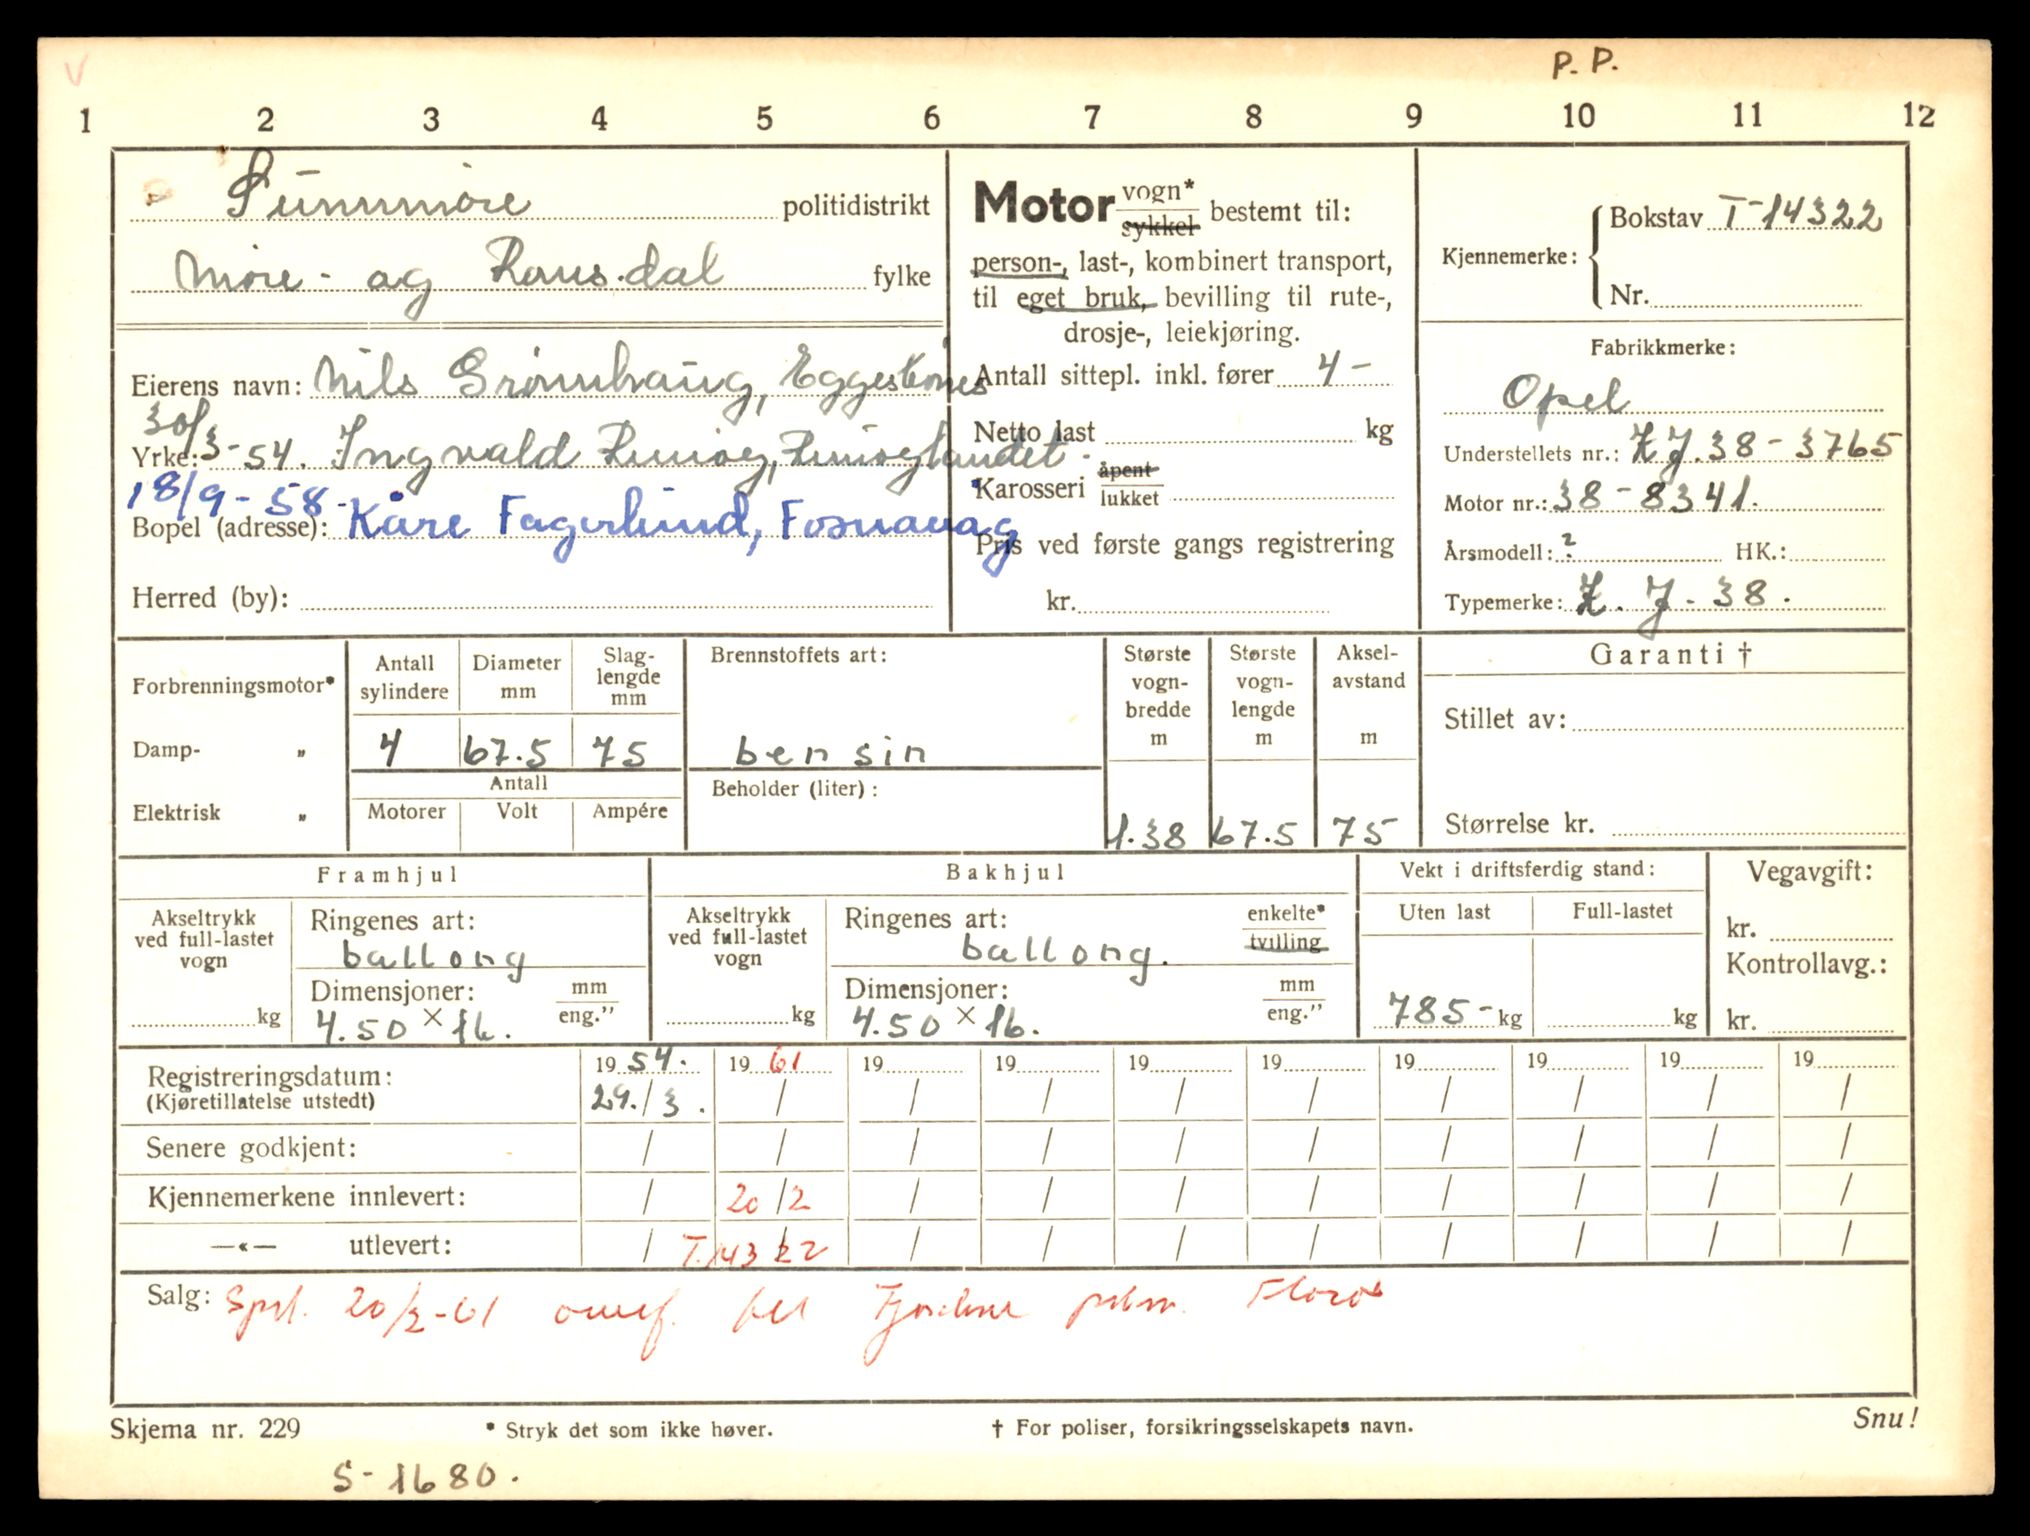 V
P. P.
1 2 3 4 5 6 7 8 9 10 11 12
Sunnmøre politidistrikt
Møre- og Romsdal fylke
Eierens navn: Nils Grønnhaug, Eggesbønes
30/3-54. Ingvald Runøy, Runøylandet.
Yrke:
18/9-58. Kåre Fagerlund, Fosnavåg
Bopel (adresse):
Herred (by):
Motor vogn* sykkel bestemt til:
person-, last-, kombinert transport,
til eget bruk, bevilling til rute-,
drosje-, leiekjøring.
Antall sittepl. inkl. fører 4-
Netto last kg
Karosseri åpent lukket
Pris ved første gangs registrering
kr.
Kjennemerke: Bokstav T-14322
Nr.
Fabrikkmerke:
Opel
Understellets nr.: K J.38-3765
Motor nr.: 38-8341.
Årsmodell: ? HK.:
Typemerke: K. J-38.
Forbrenningsmotor*
Damp- „
Elektrisk „
Antall sylindere
4
Diameter mm
67.5
Slag- lengde mm
75
Antall
Motorer Volt Ampére
Brennstoffets art:
bensin
Beholder (liter):
Største vogn- bredde m
1.38
Største vogn- lengde m
67.5
Aksel- avstand m
75
Garanti †
Stillet av:
Størrelse kr.
Framhjul
Akseltrykk ved full-lastet vogn
kg
Ringenes art:
ballong
Dimensjoner: mm eng."
4.50 × 16.
Bakhjul
Akseltrykk ved full-lastet vogn
kg
Ringenes art: enkelte* tvilling
ballong.
Dimensjoner: mm eng."
4.50 × 16.
Vekt i driftsferdig stand:
Uten last Full-lastet
785- kg kg
Vegavgift:
kr.
Kontrollavg.:
kr.
19 54. 19 61 19 19 19 19 19 19 19 19
Registreringsdatum: 29./3. / / / / / / / / /
(Kjøretillatelse utstedt)
Senere godkjent: / / / / / / / / / /
Kjennemerkene innlevert: / 20/2 / / / / / / / /
—«— utlevert: / T.14322 / / / / / / / /
Salg: 20/2-61 til Fjordane Florø
Skjema nr. 229 * Stryk det som ikke høver. † For poliser, forsikringsselskapets navn. Snu!
S-1680.